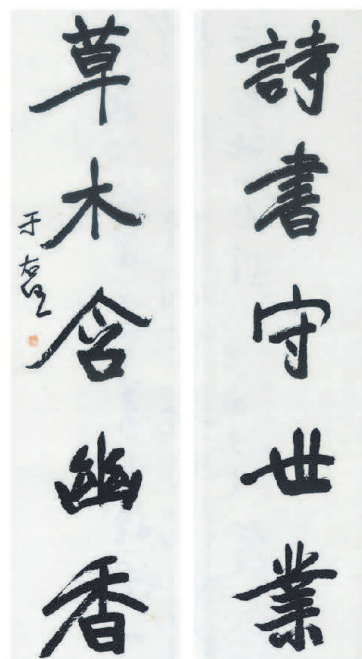 詩書守世業
草木含幽香
于右任